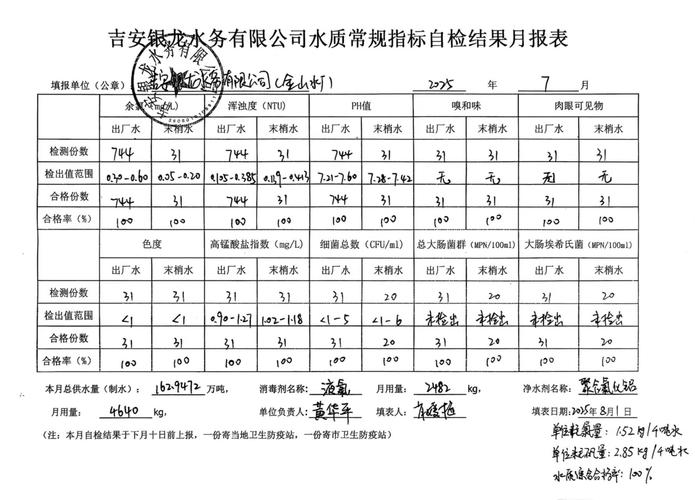 吉安银龙水务有限公司水质常规指标自检结果月报表
填报单位（公章）： 吉安银龙水务有限公司(金山水厂) 2025 年 7 月
余氯（mg/L） 浑浊度（NTU） PH值 嗅和味 肉眼可见物
出厂水 末梢水 出厂水 末梢水 出厂水 末梢水 出厂水 末梢水 出厂水 末梢水
检测份数 744 31 744 31 744 31 31 31 31 31
检出值范围 0.30-0.60 0.05-0.20 0.105-0.385 0.139-0.413 7.21-7.60 7.28-7.42 无 无 无 无
合格份数 744 31 744 31 744 31 31 31 31 31
合格率（%） 100 100 100 100 100 100 100 100 100 100
色度 高锰酸盐指数（mg/L） 细菌总数（CFU/ml） 总大肠菌群（MPN/100ml） 大肠埃希氏菌（MPN/100ml）
出厂水 末梢水 出厂水 末梢水 出厂水 末梢水 出厂水 末梢水 出厂水 末梢水
检测份数 31 31 31 31 31 20 31 20 31 20
检出值范围 <1 <1 0.90-1.27 1.02-1.18 <1-5 <1-6 未检出 未检出 未检出 未检出
合格份数 31 31 31 31 31 20 31 20 31 20
合格率（%） 100 100 100 100 100 100 100 100 100 100
本月总供水量（制水）： 162.9472 万吨， 消毒剂名称： 液氯 月用量： 2482 kg， 净水剂名称： 聚合氯化铝
月用量： 4640 kg， 单位负责人： 黄华平 填表人： 填表日期： 2025年8月1日
（注：本月自检结果于下月十日前上报，一份寄当地卫生防疫站，一份寄市卫生防疫站）
单位耗氯量：1.52 kg/千吨水
单位耗矾量：2.85 kg/千吨水
水质综合合格率：100%